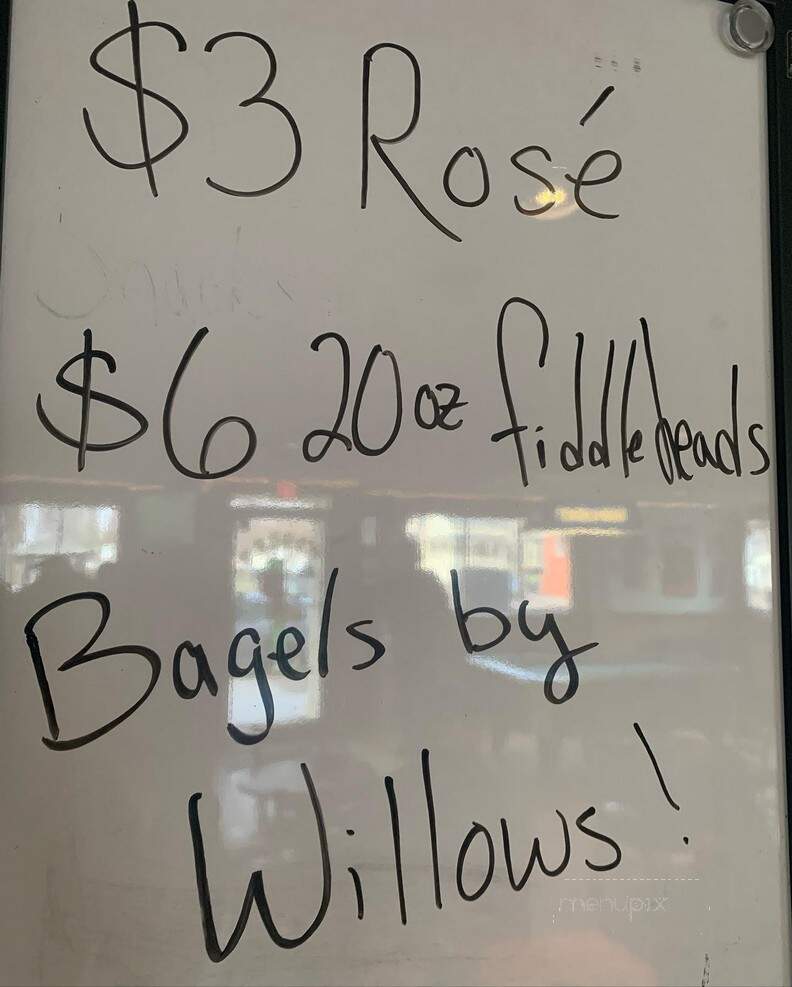 $3 Rosé
$6 20oz fiddleheads
Bagels by
Willows!
menupix